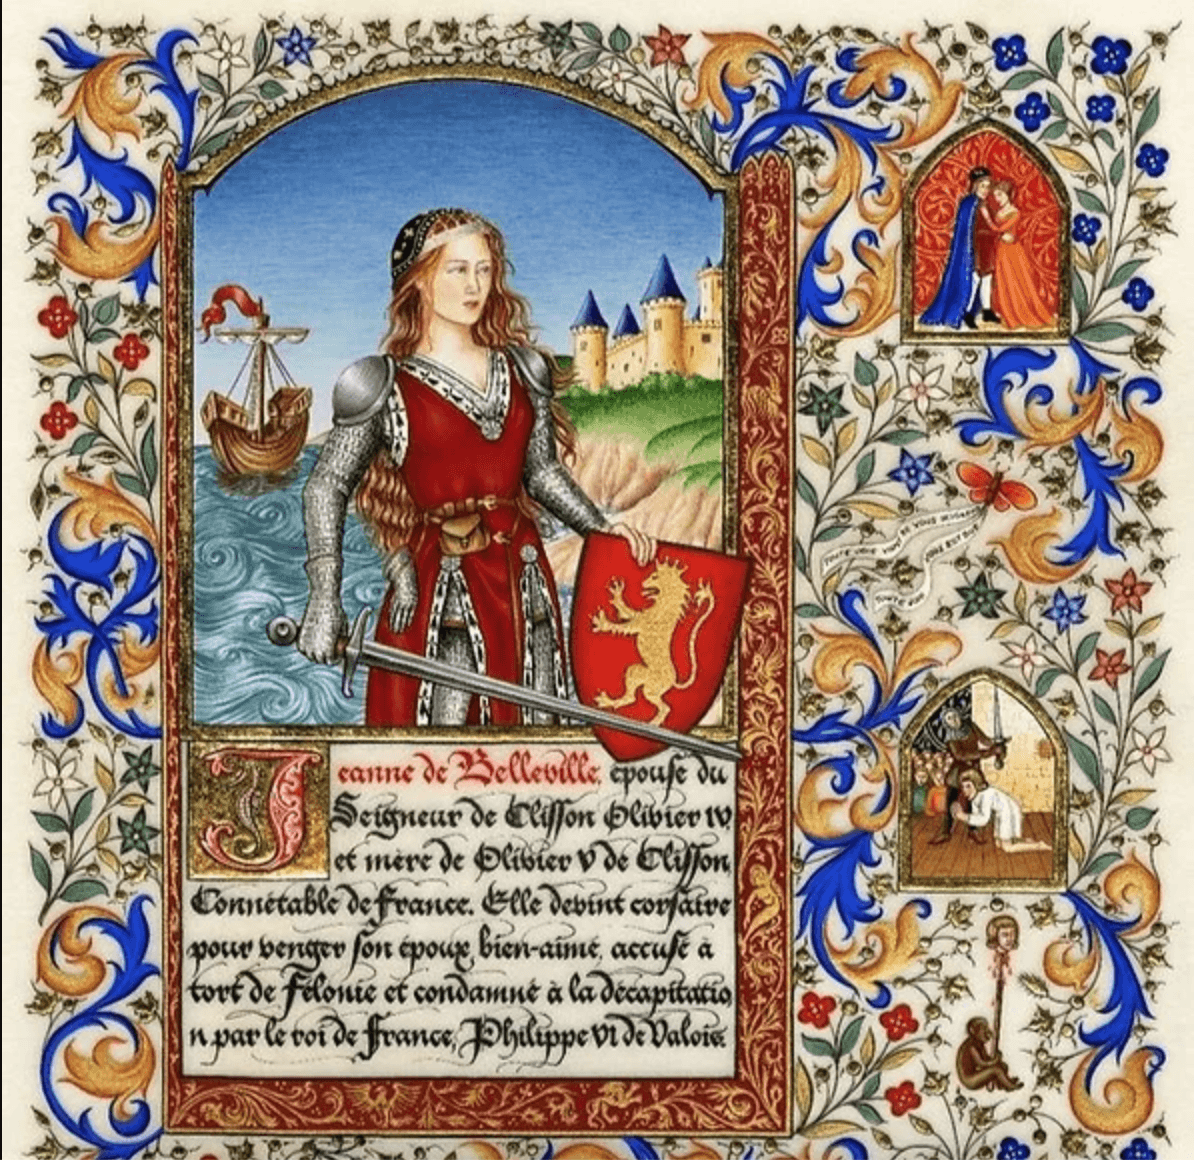 Jeanne de Belleville, épouse du
Seigneur de Clisson Olivier IV,
et mère de Olivier V de Clisson,
Connétable de France. Elle devint corsaire
pour venger son époux, bien-aimé, accusé à
tort de Félonie et condamné à la décapitatio
n par le roi de France, Philippe VI de Valois.